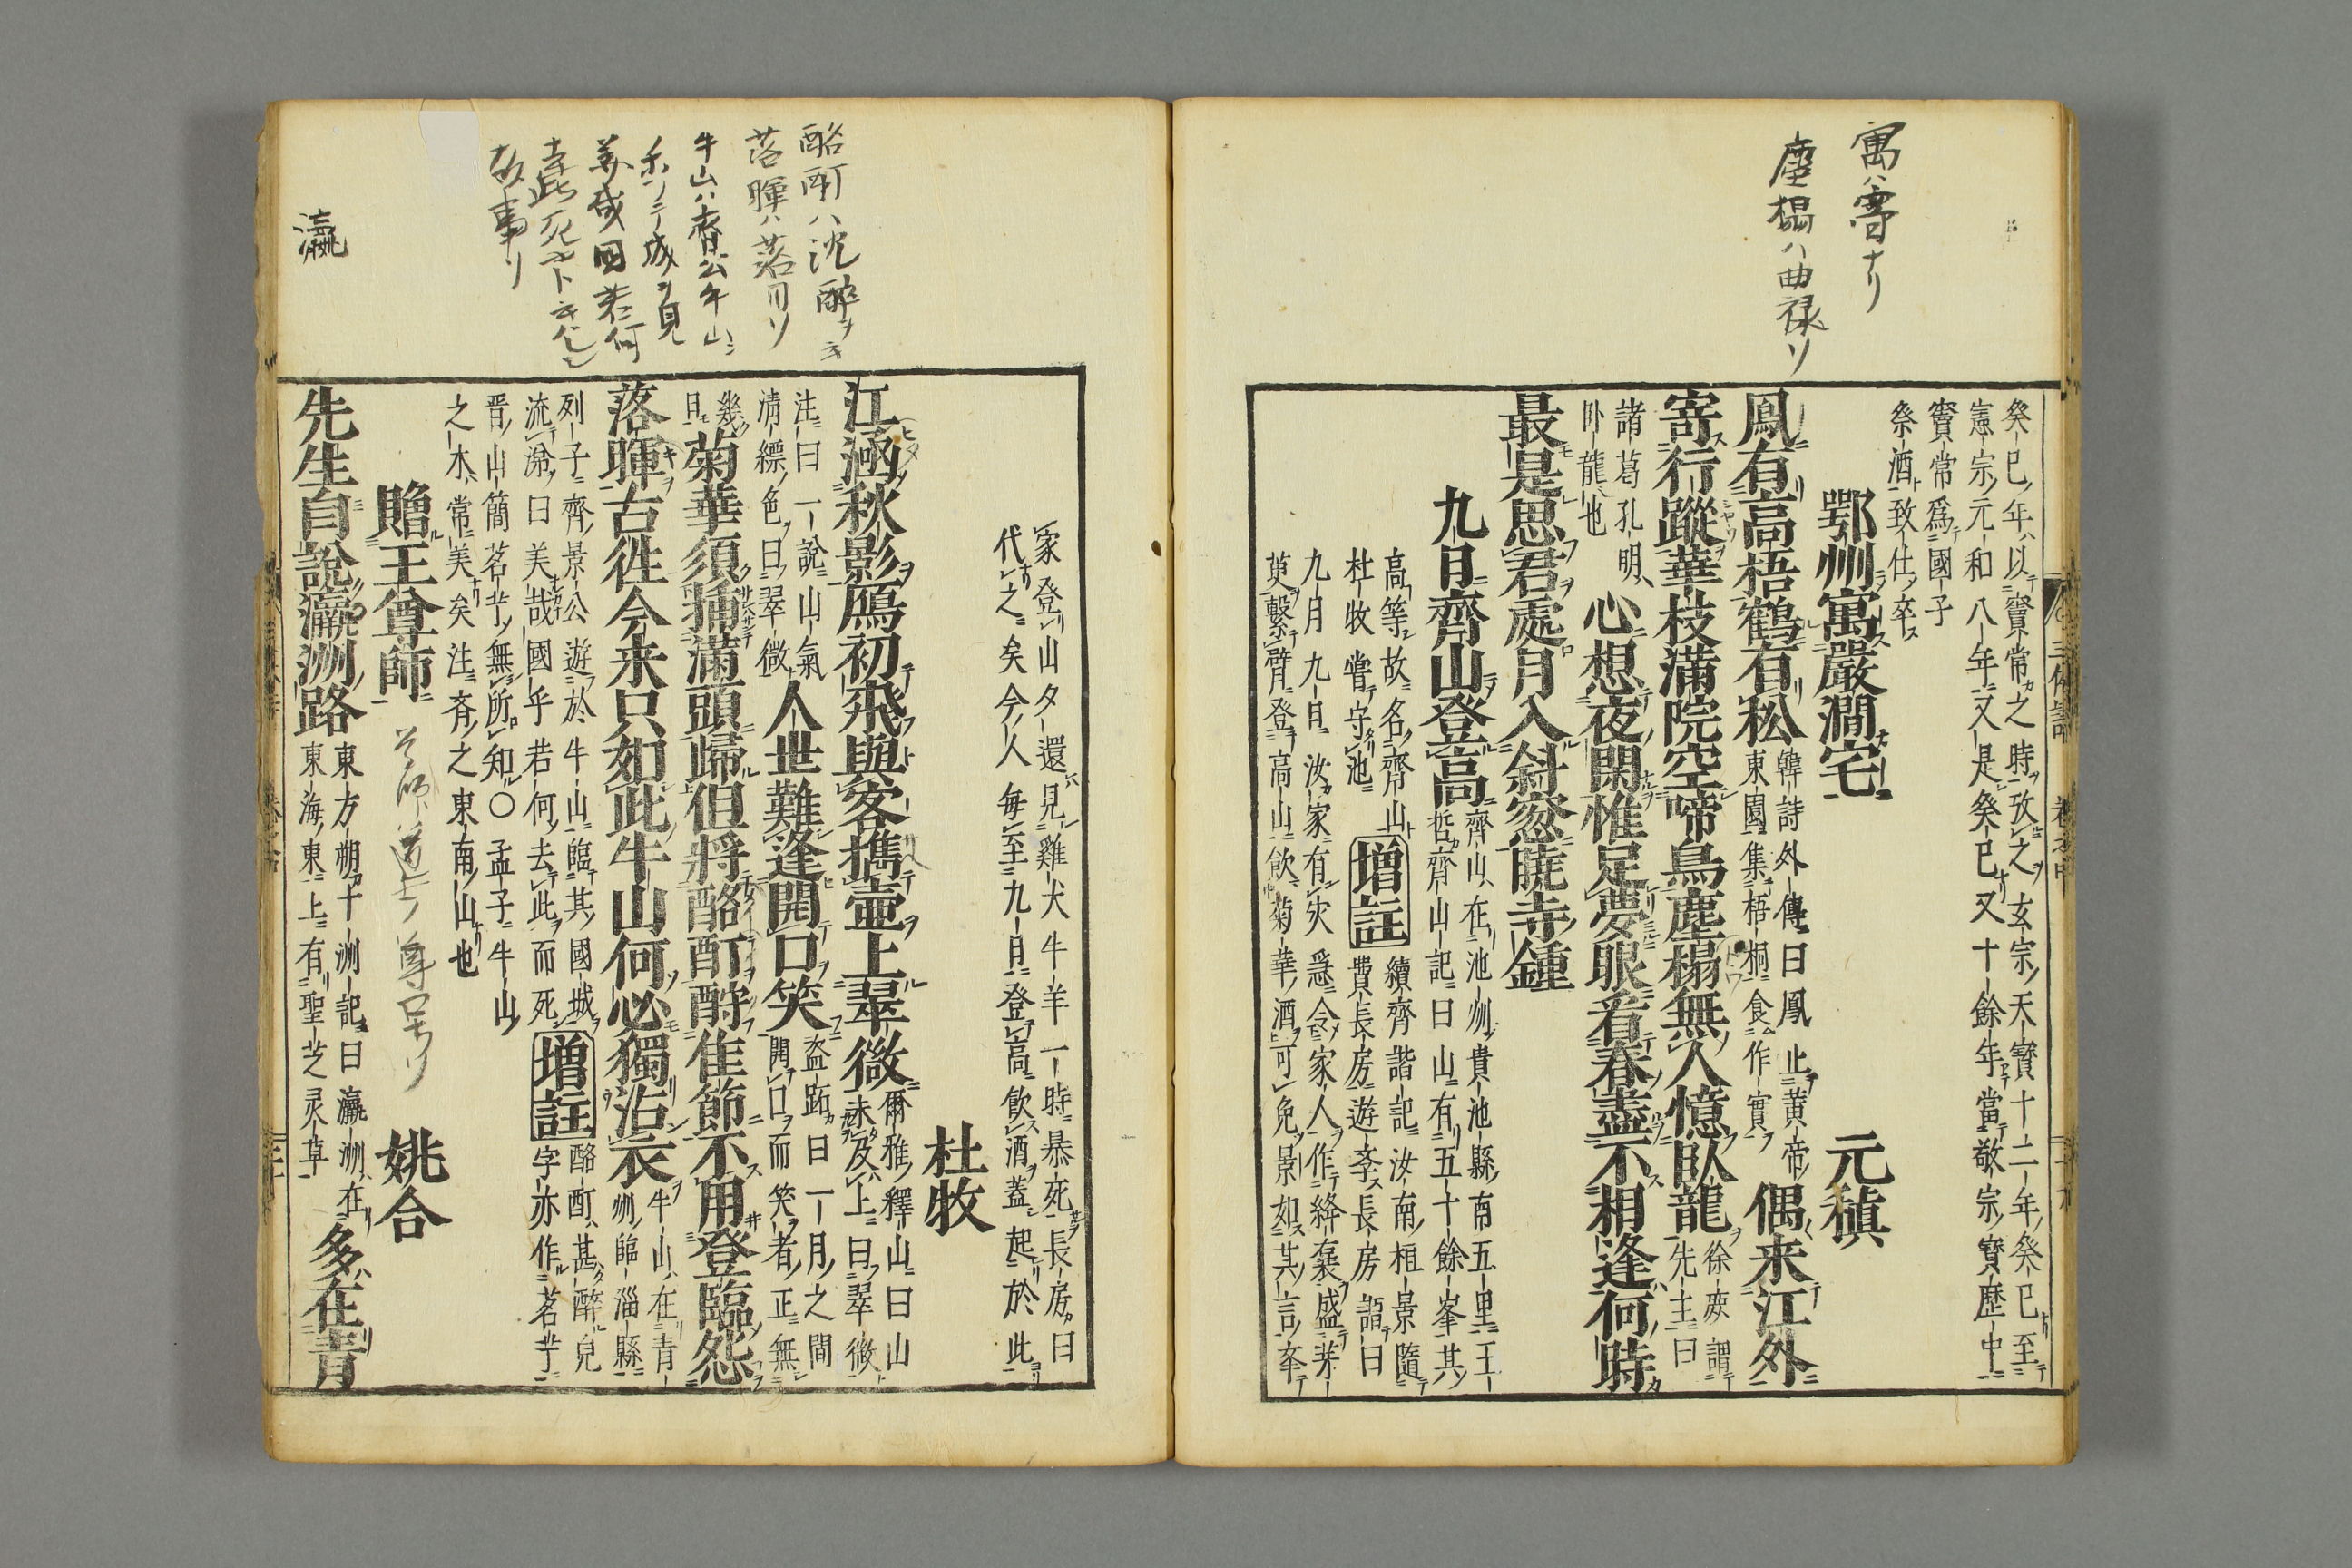 寓ハ寄ナリ
塵榻ハ曲禄ソ
癸巳年以竇常之時攷之玄宗天寶十二年癸巳至
憲宗元和八年又是癸巳又十餘年當敬宗寳歴中
竇常爲國子
祭酒致仕卒
鄂州寓嚴澗宅
元稹
鳳有高梧鶴有松
韓詩外傳曰鳳止黄帝
東園集梧桐食作實
偶来江外
寄行蹤華枝滿院空啼鳥塵榻無人憶臥龍
徐庻謂
先主曰
諸葛孔明
卧龍也
心想夜閑惟足夢眼看春盡不相逢何時
最是思君處月入斜窓暁寺鍾
九日齊山登高
齊山在池州貴池縣南五里王
哲齊山記曰山有五十餘峯其
高等故名齊山
杜牧嘗守池
増註
續齊諧記汝南桓景隨
費長房遊李長房謂曰
九月九日汝家有灾急令家人作絳囊盛茅
萸繫臂登高山飲菊華酒可免景如其言夲
家登山夕還見雞犬牛羊一時暴死長房曰
代之矣今人每至九日登高飲酒蓋起於此
杜牧
江涵秋影鴈初飛與客攜壷上翠微
爾雅釋山曰山
未及上曰翠微
注曰一說山氣
清縹色曰翠微
人世難逢開口笑
盗跖曰一月之間
開口而笑者正無
幾
日
菊華須插滿頭歸但將酩酊酧佳節不用登臨怨
落暉古徃今来只如此牛山何必獨沾衣
牛山在青
州臨淄縣
列子齊景公遊於牛山臨其國城
流涕曰美哉國乎若何去此而死
増註
酩酊甚醉皃
字亦作茗艼
晋山簡茗艼無所知〇孟子牛山
之木常美矣注斉之東南山也
贈王尊師
姚合
先生自說瀛洲路
東方朔十洲記曰瀛洲在
東海東上有聖芝灵草
多在青
酩酊ハ沈醉ヲ云
落暉ハ落日ソ
牛山ハ齊景公牛山ニ
美哉國若何
故事ソ
瀛